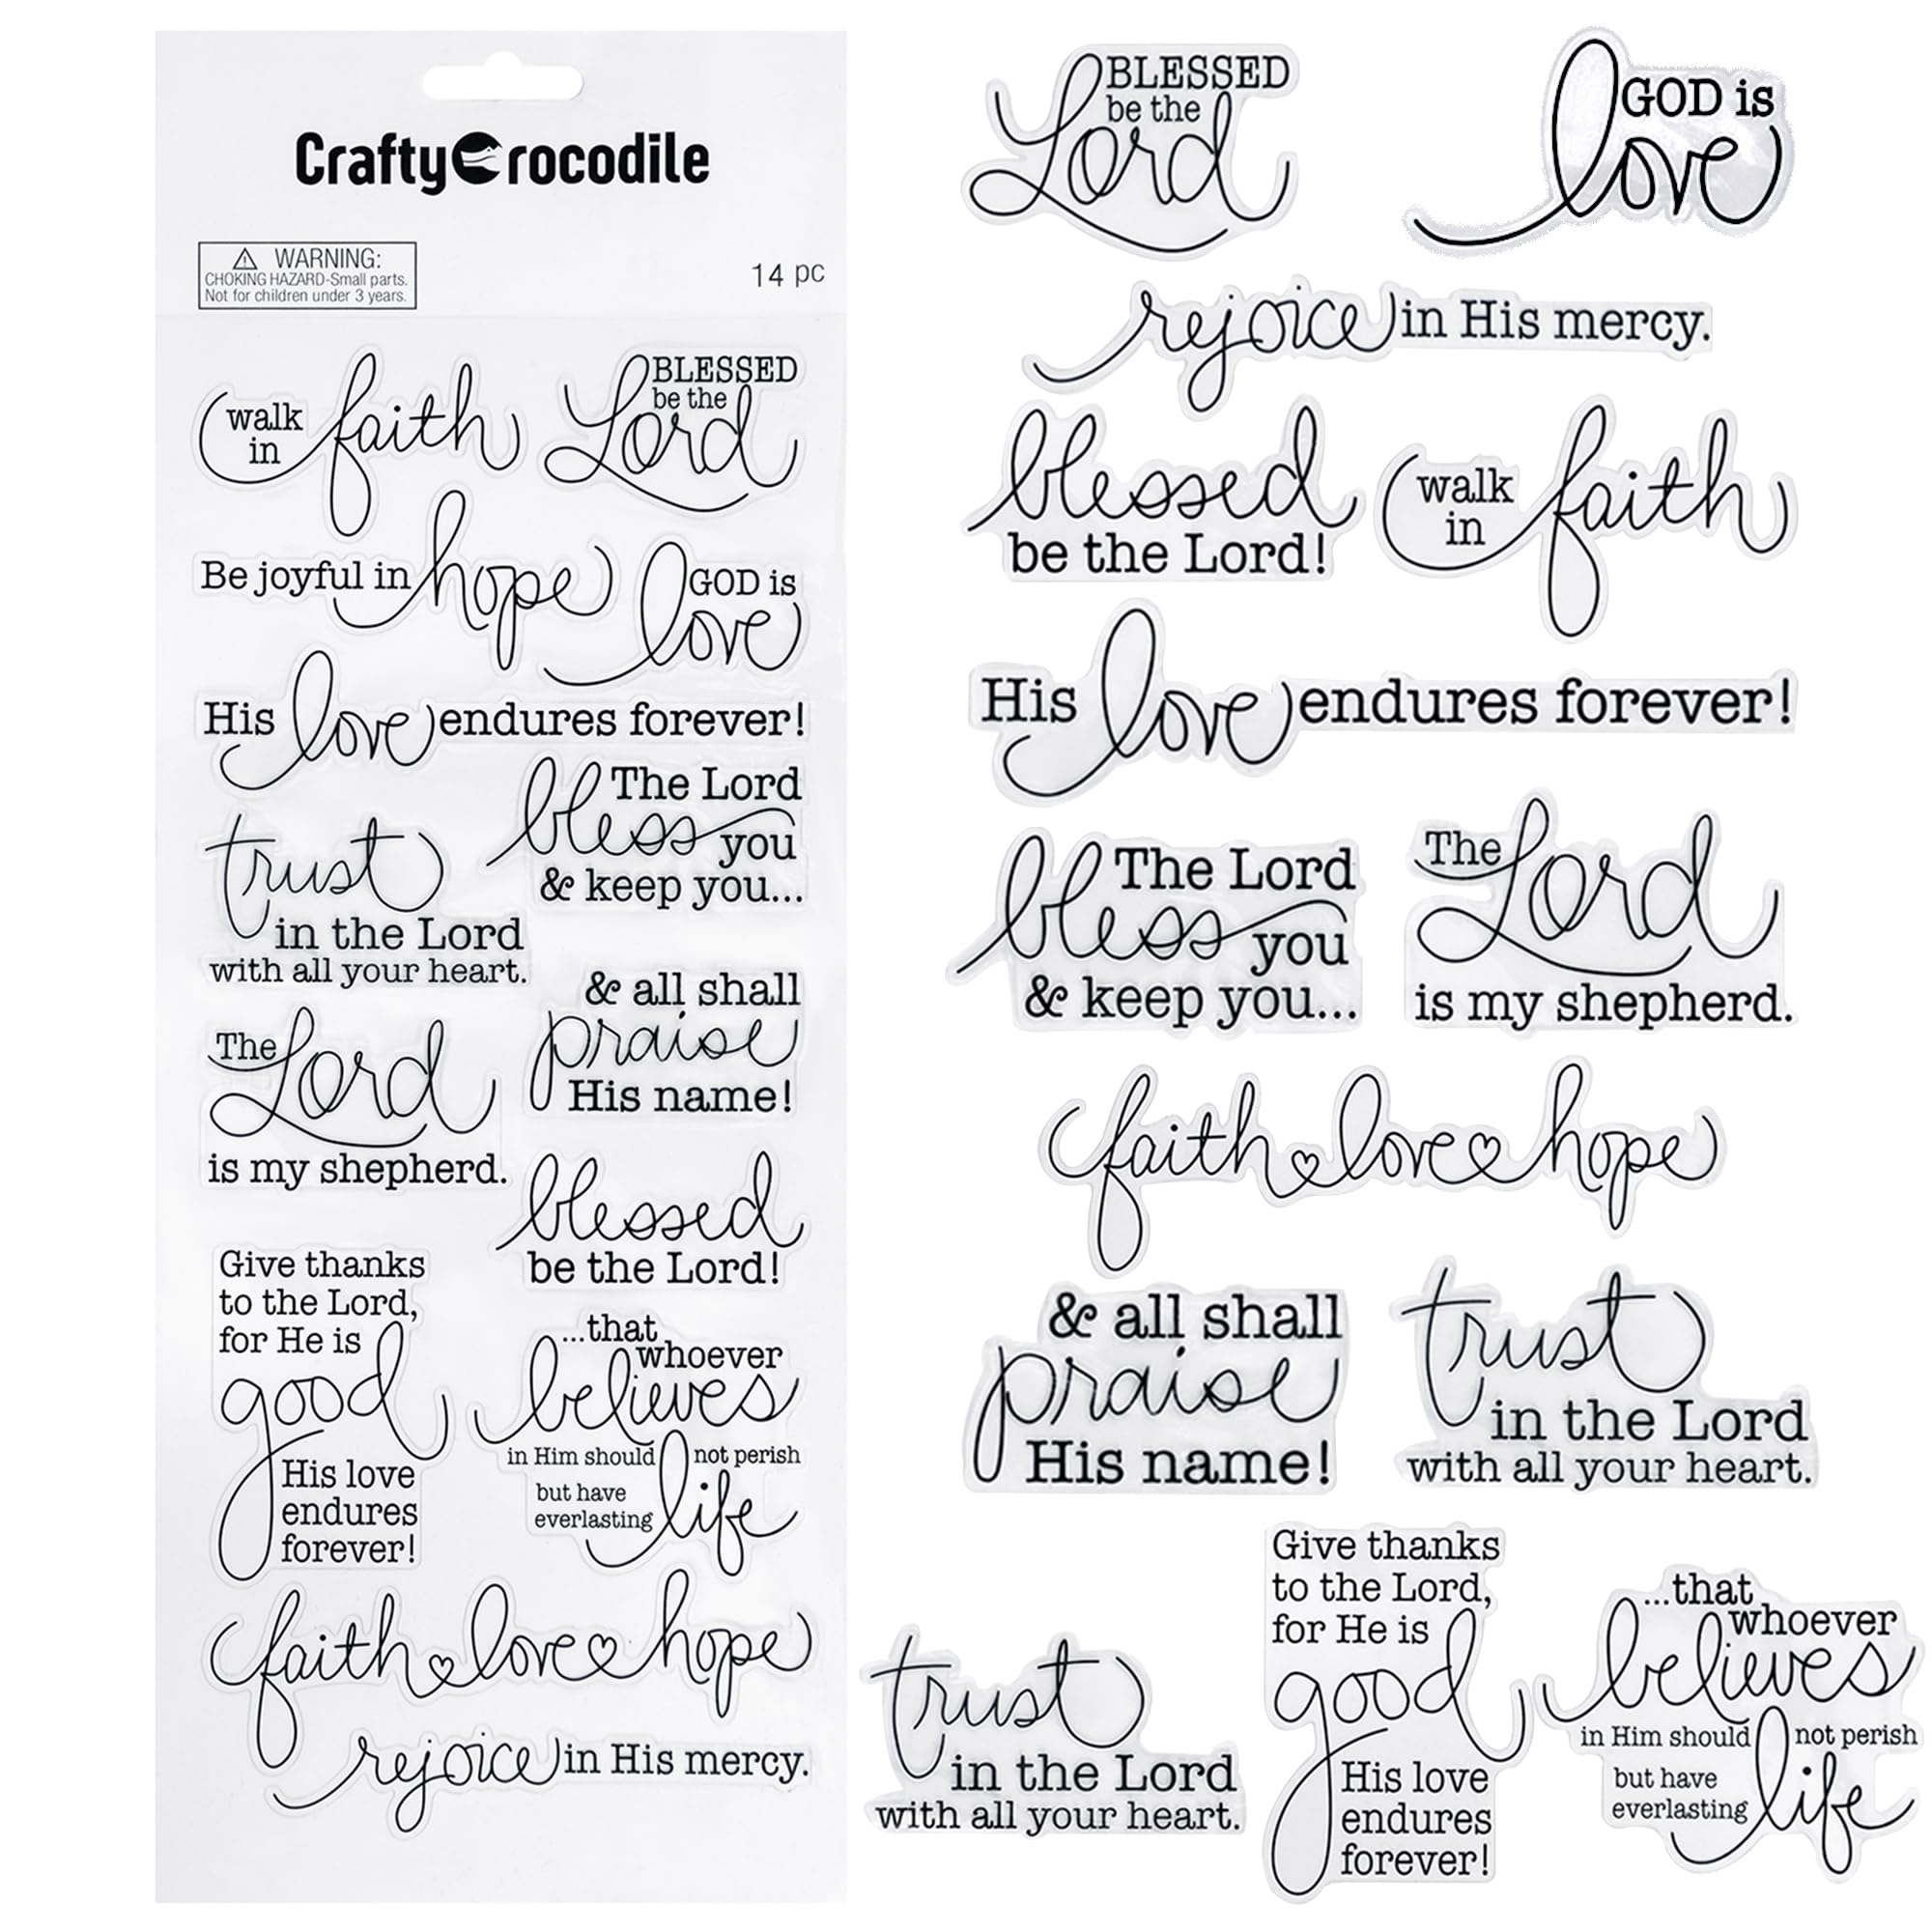 CraftyCrocodile
WARNING:
CHOKING HAZARD-Small parts.
Not for children under 3 years.
14 pc
walk
in faith
BLESSED
be the
Lord
Be joyful in hope
GOD is
love
His love endures forever!
The Lord
bless you
& keep you...
trust
in the Lord
with all your heart.
& all shall
praise
His name!
The Lord
is my shepherd.
blessed
be the Lord!
Give thanks
to the Lord,
for He is
good
His love
endures
forever!
...that
whoever
believes
in Him should not perish
but have
everlasting life
faith love hope
rejoice in His mercy.
BLESSED
be the
Lord
GOD is
love
rejoice in His mercy.
blessed
be the Lord!
walk
in faith
His love endures forever!
The Lord
bless you
& keep you...
The Lord
is my shepherd.
faith love hope
& all shall
praise
His name!
trust
in the Lord
with all your heart.
trust
in the Lord
with all your heart.
Give thanks
to the Lord,
for He is
good
His love
endures
forever!
...that
whoever
believes
in Him should not perish
but have
everlasting life